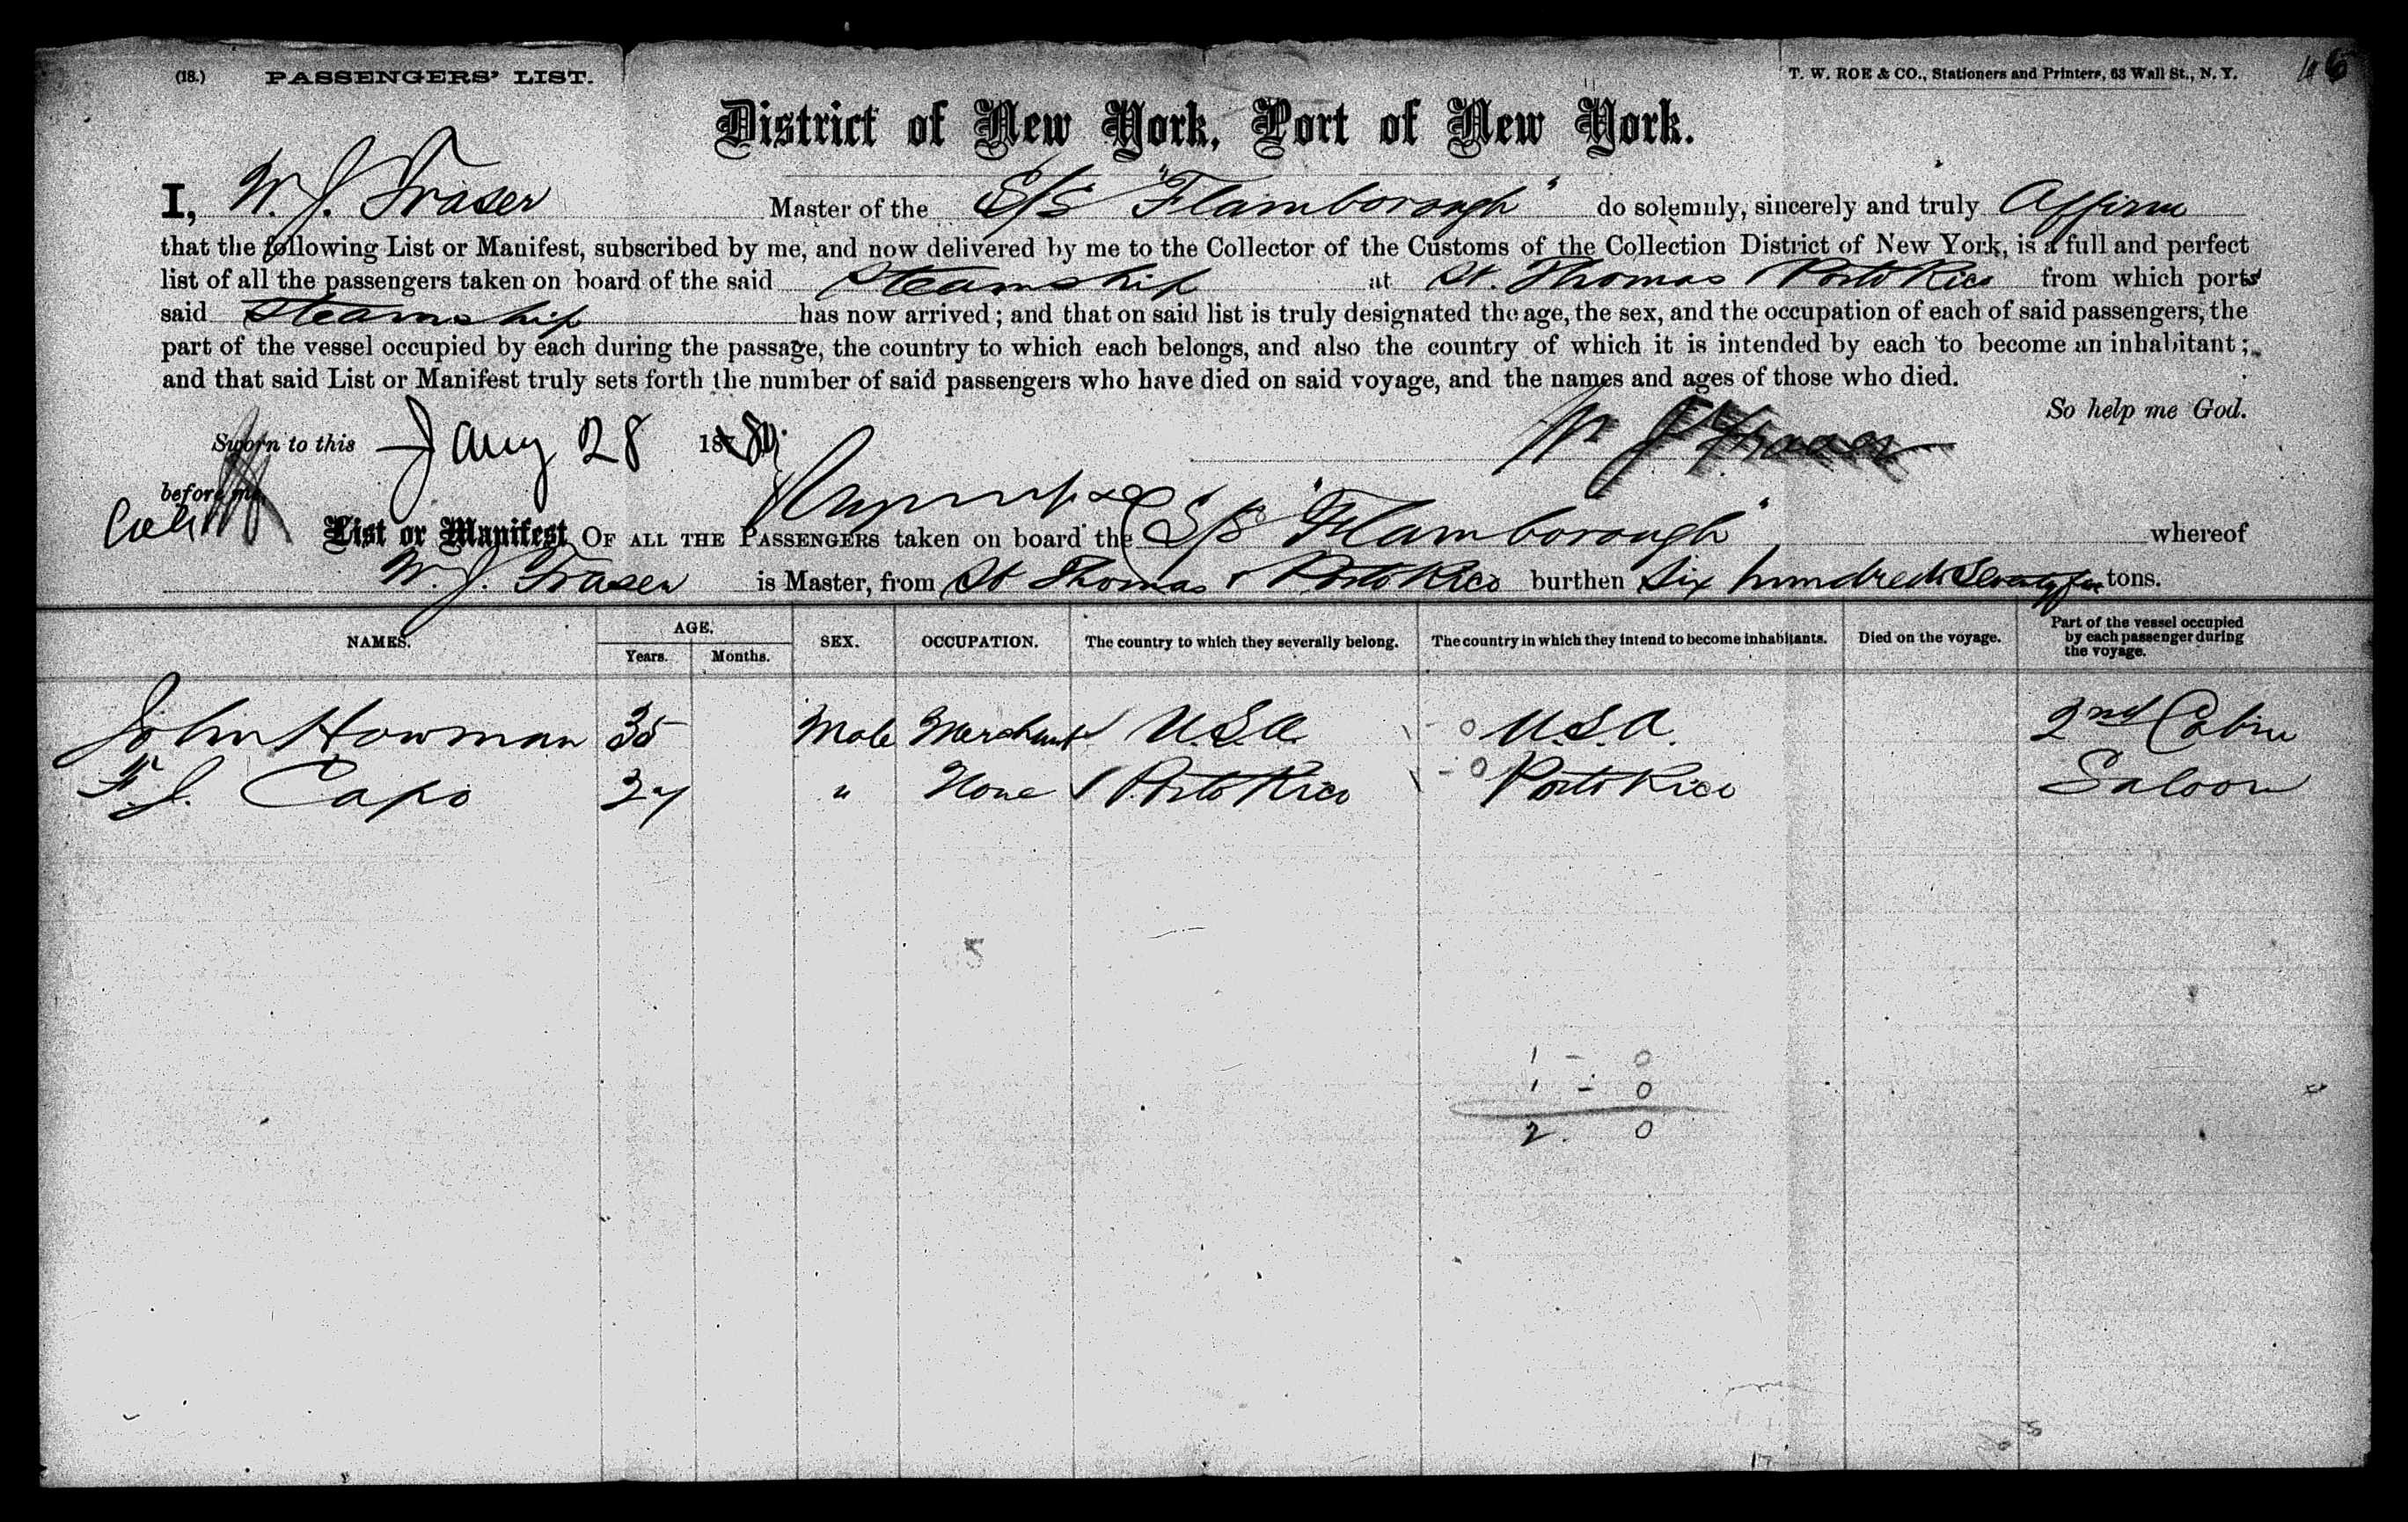 (18.) PASSENGERS' LIST.
T. W. ROE & CO., Stationers and Printers, 63 Wall St., N. Y.
District of New York, Port of New York.
I, W. J. Fraser Master of the S/S "Flamborough" do solemnly, sincerely and truly Affirm
that the following List or Manifest, subscribed by me, and now delivered by me to the Collector of the Customs of the Collection District of New York, is a full and perfect
list of all the passengers taken on board of the said Steamship at St. Thomas Porto Rico from which ports
said Steamship has now arrived; and that on said list is truly designated the age, the sex, and the occupation of each of said passengers, the
part of the vessel occupied by each during the passage, the country to which each belongs, and also the country of which it is intended by each to become an inhabitant;
and that said List or Manifest truly sets forth the number of said passengers who have died on said voyage, and the names and ages of those who died.
So help me God.
Sworn to this Jany 28 1880. W J Fraser
before me
List or Manifest OF ALL THE PASSENGERS taken on board the S/S "Flamborough" whereof
W. J. Fraser is Master, from St Thomas & Porto Rico burthen Six hundred tons.
NAMES. AGE. Years. Months. SEX. OCCUPATION. The country to which they severally belong. The country in which they intend to become inhabitants. Died on the voyage. Part of the vessel occupied by each passenger during the voyage.
John Howman 35 Male Merchant U.S.A. - 0 U.S.A. 2nd Cabin
F. J. Capo 27 " None Porto Rico - 0 Porto Rico Saloon
1 - 0
1 - 0
2. 0